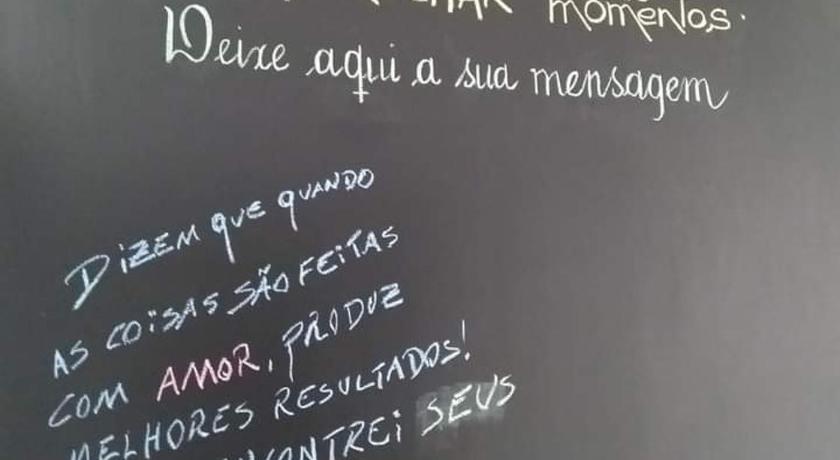 momentos.
Deixe aqui a sua mensagem
DIZEM QUE QUANDO
AS COISAS SÃO FEITAS
COM AMOR, PRODUZ
MELHORES RESULTADOS!
SEUS